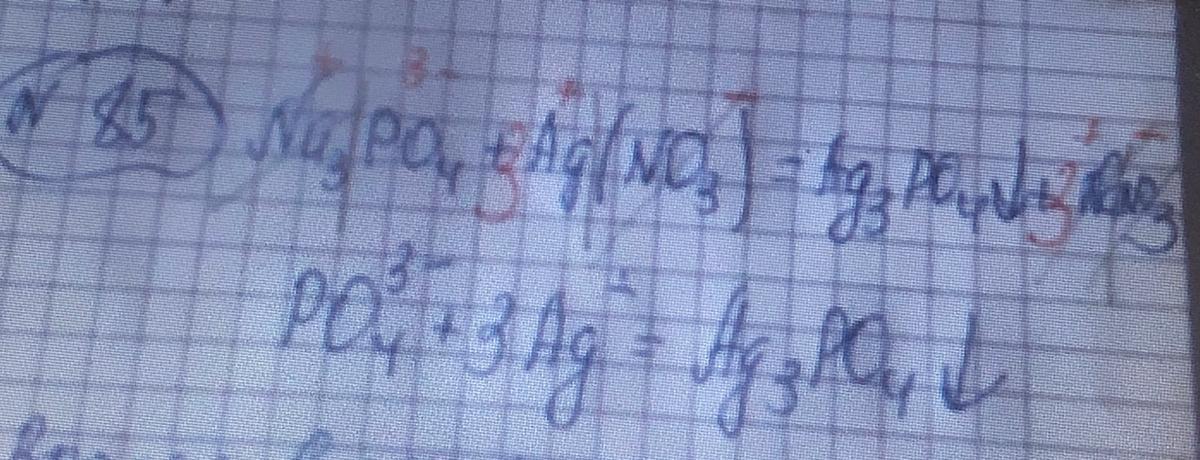 N 85 Na₃PO₄ + 3Ag(NO₃) = Ag₃PO₄↓ + 3NaNO₃
PO₄³⁻ + 3Ag⁺ = Ag₃PO₄↓